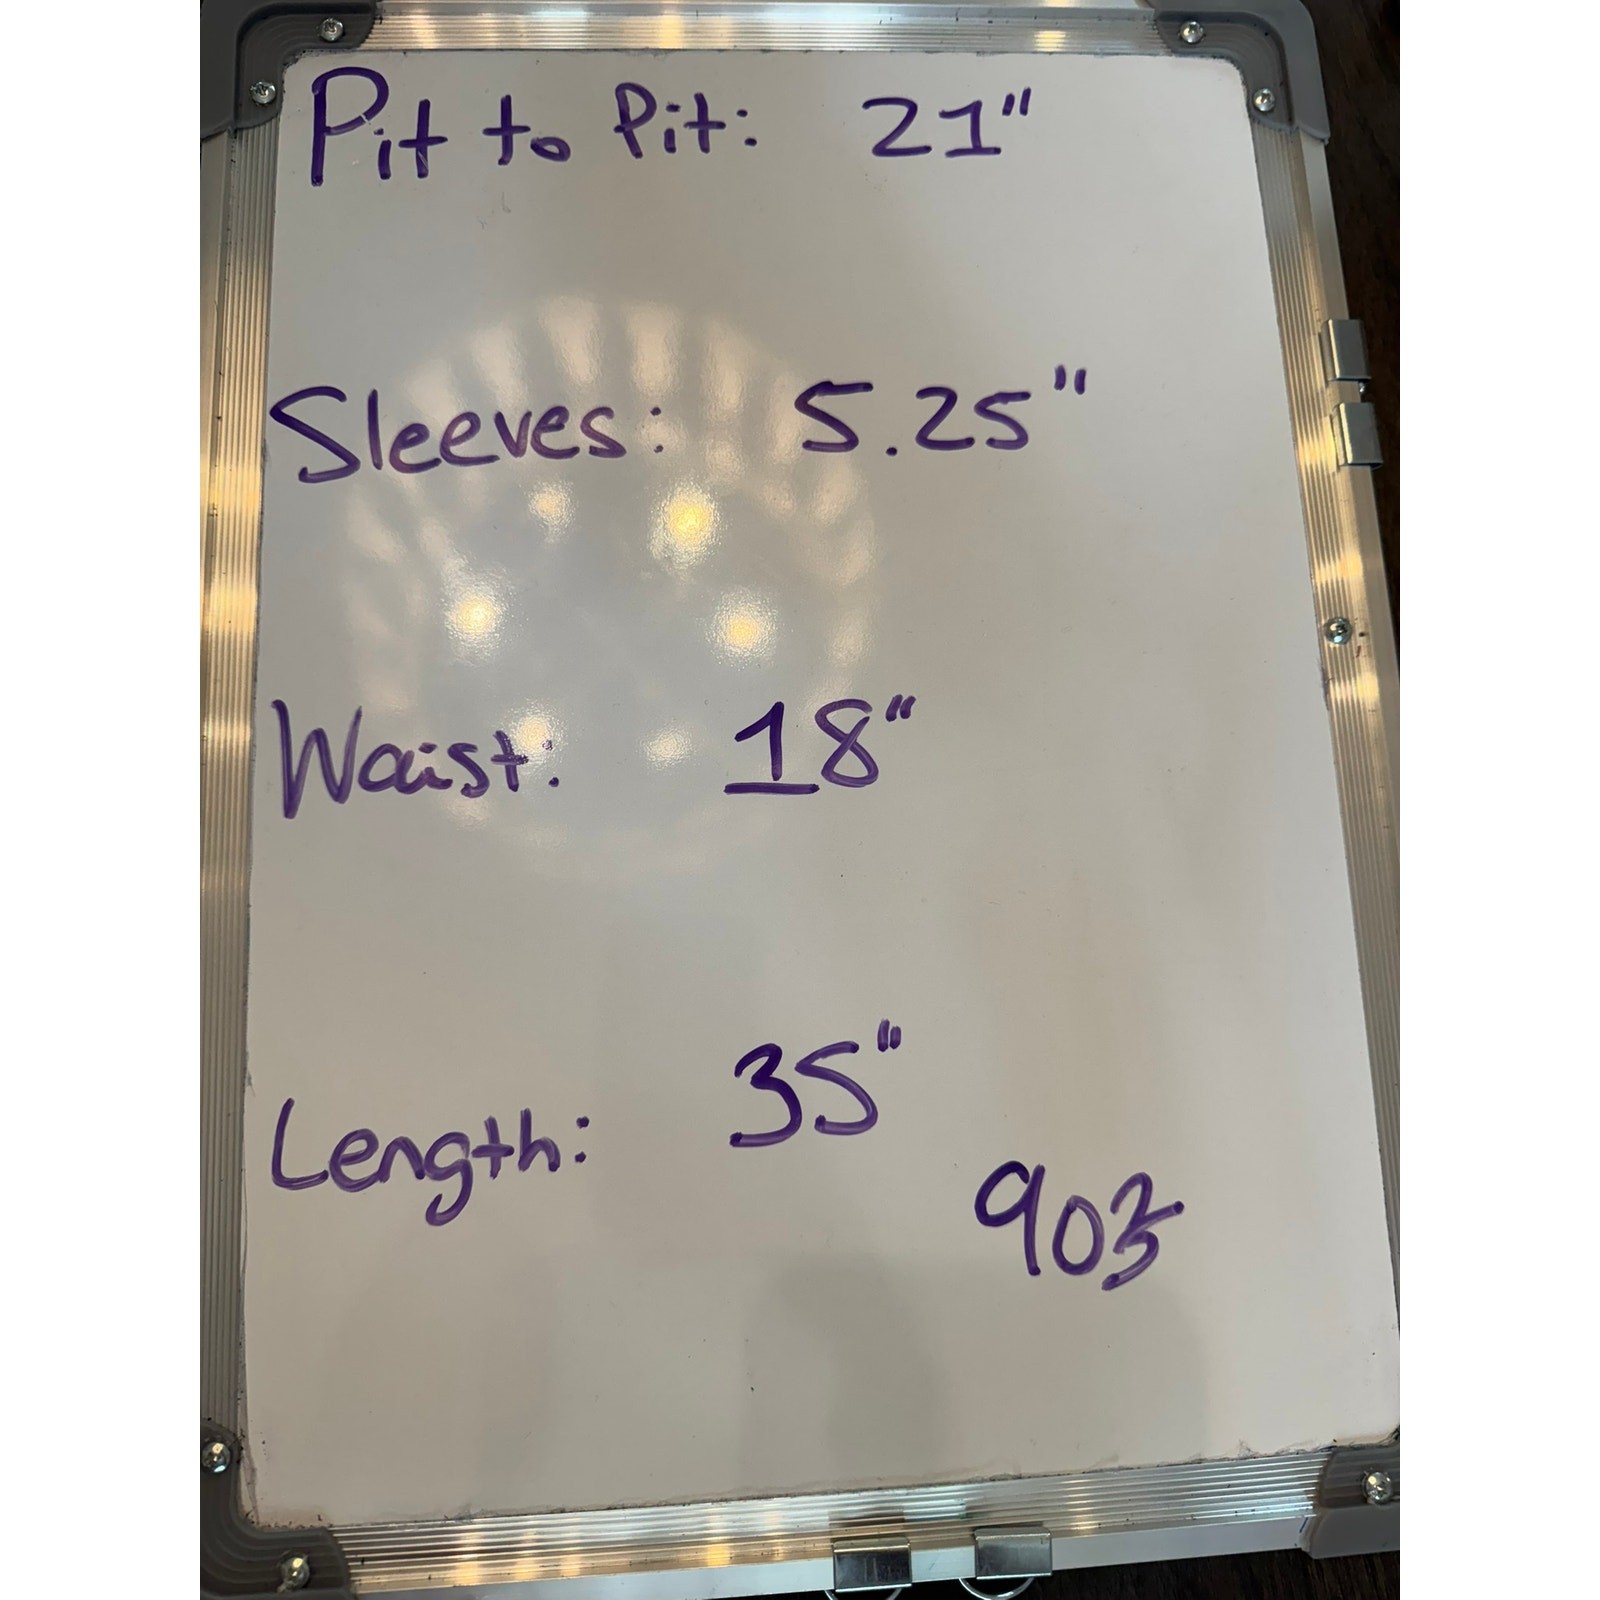 Pit to Pit: 21"
Sleeves: 5.25"
Waist: 18"
Length: 35"
9oz